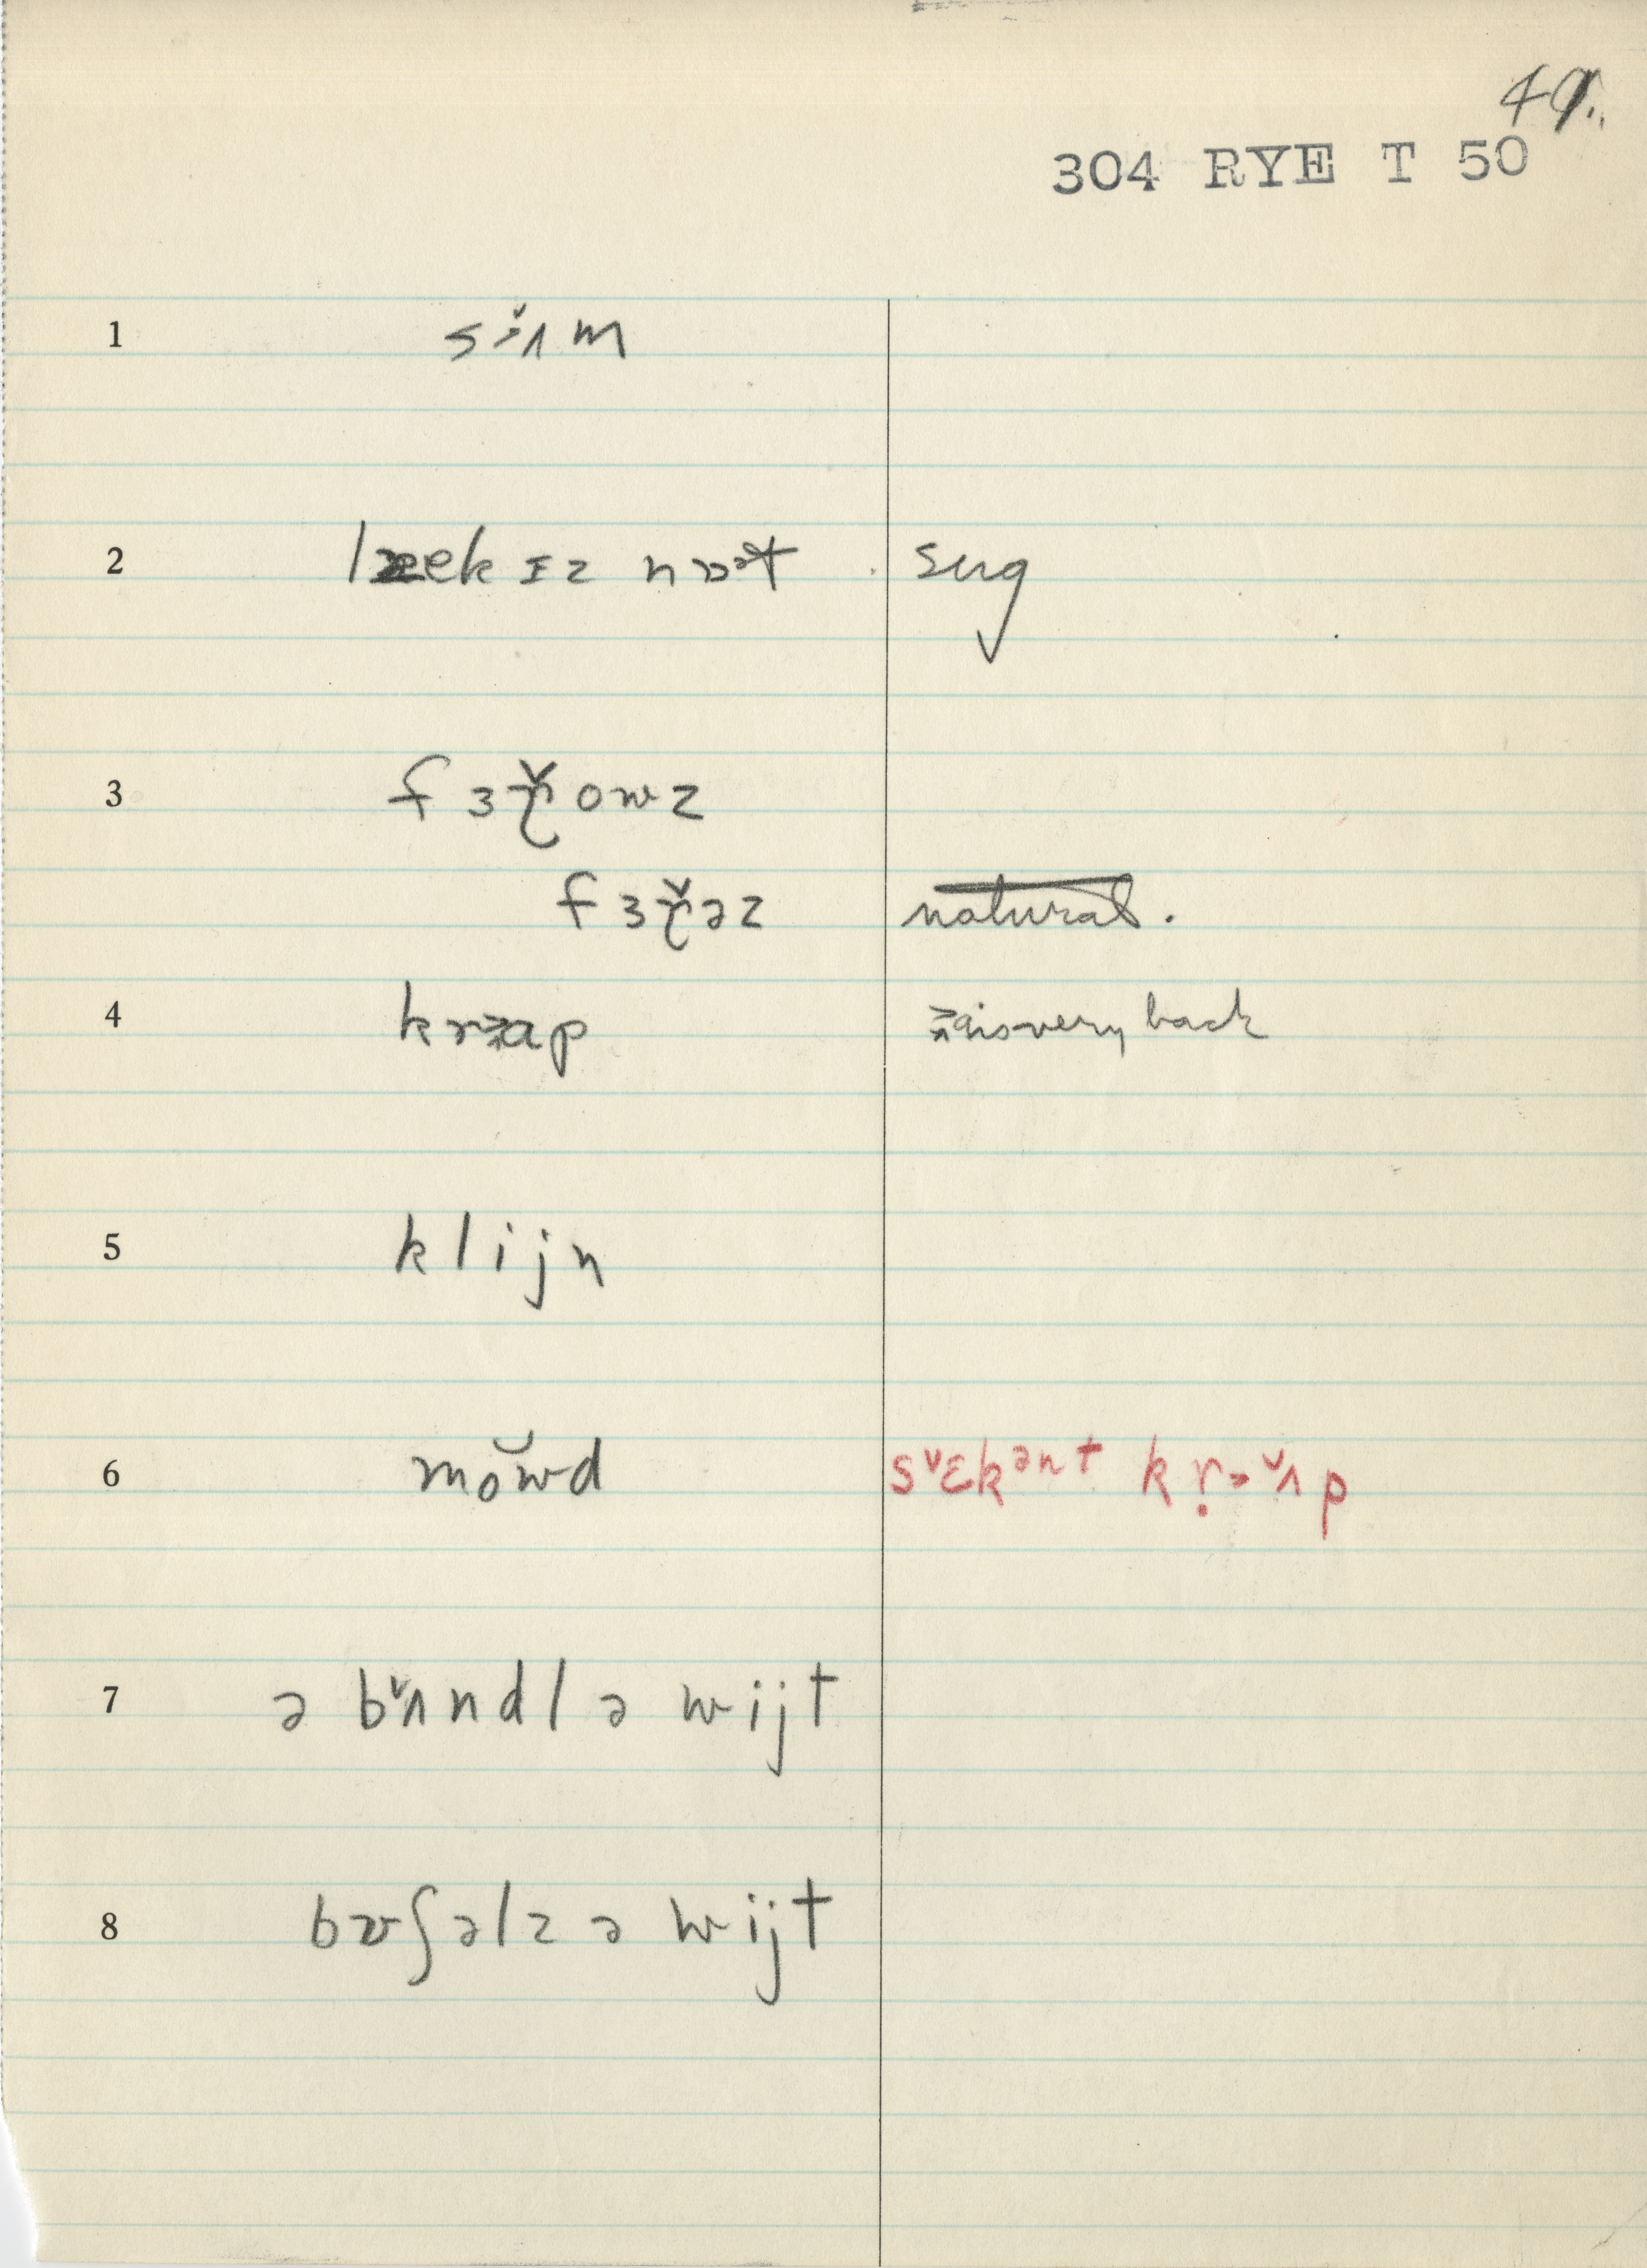 49.
304 RYE T 50
1 s ɪ̆ʌ m
2 ɪz nɒət sug
3 f ɜ ɚ̆ o w z
f ɜ ɚ̆ ə z natural.
4 a is very back
5 k l i j n
6 mŏwd sˇɛkənt
7 ə bˇʌndl ə wijt
8 bʊʃəlz ə wijt